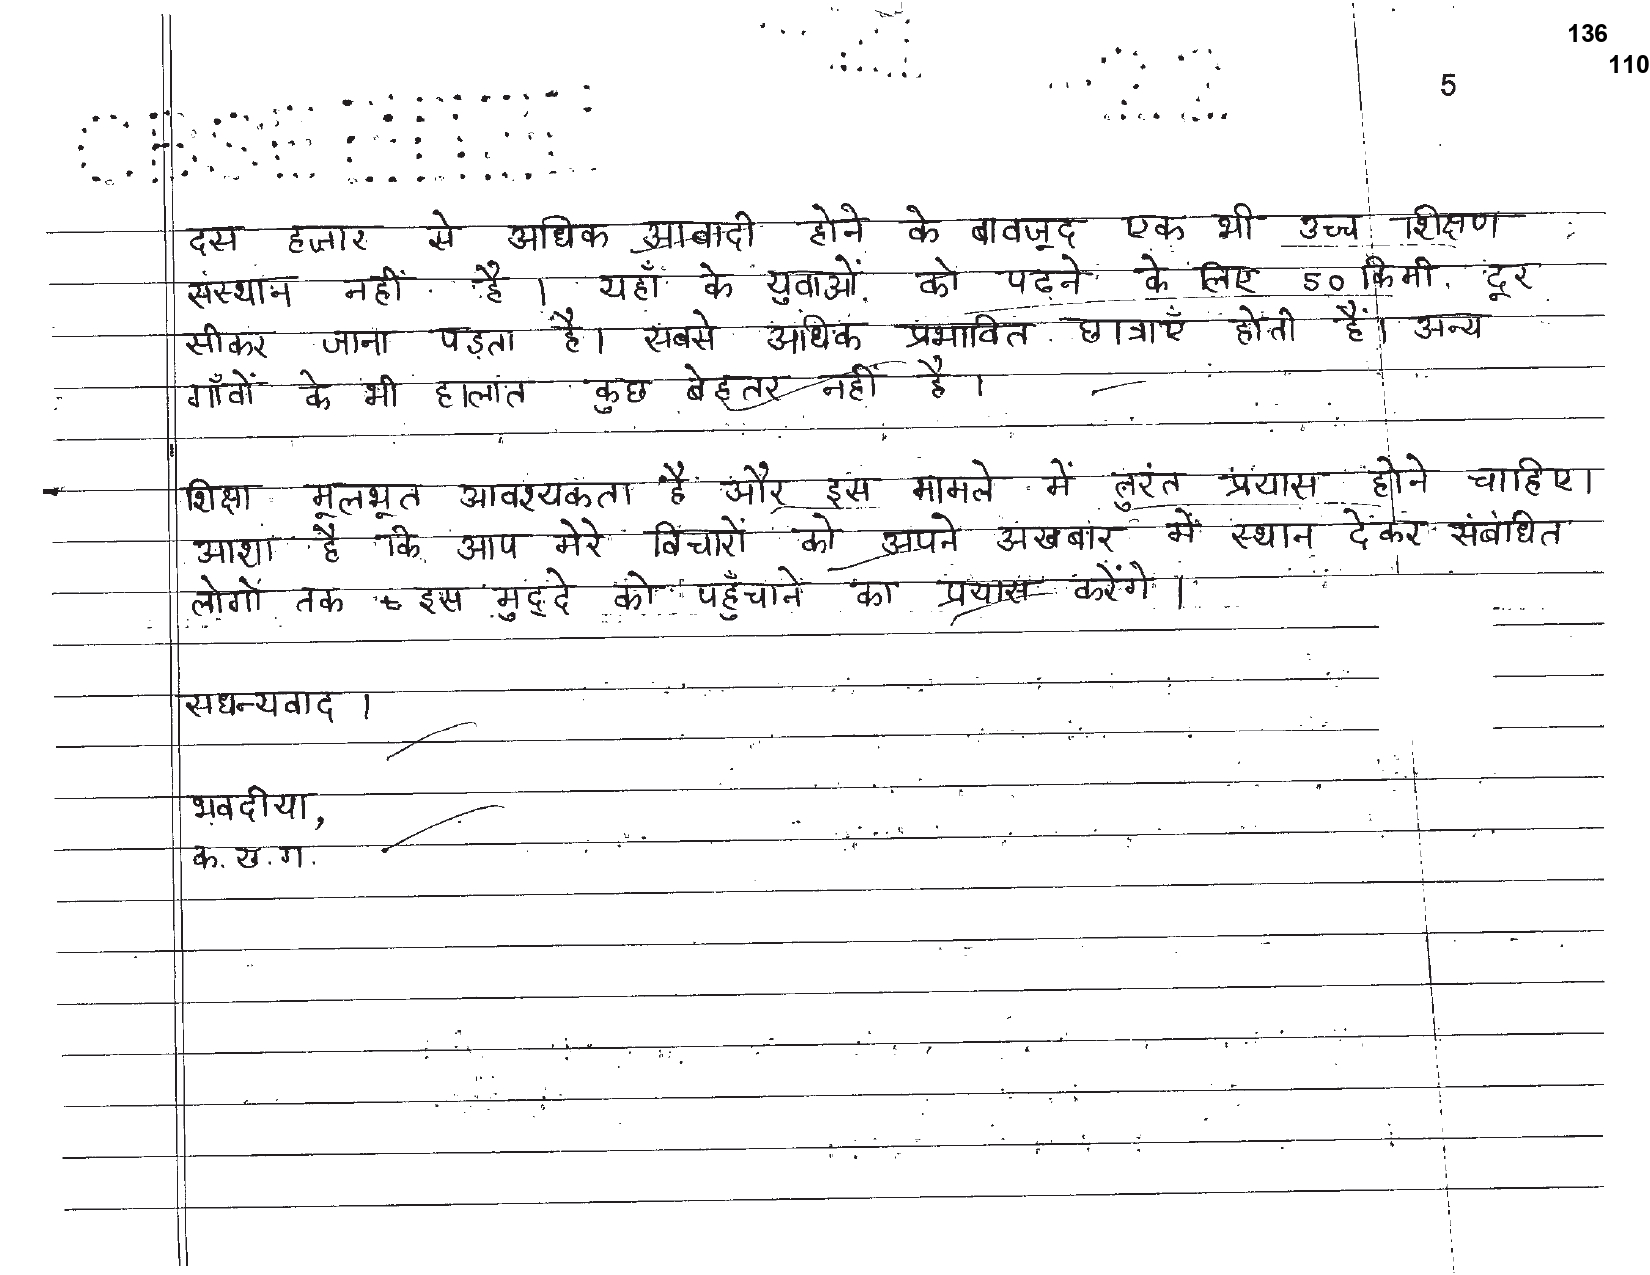 136
110
5
दस हजार से अधिक आबादी होने के बावजूद एक भी उच्च शिक्षण
संस्थान नहीं है । यहाँ के युवाओं को पढने के लिए 50 किमी. दूर
सीकर जाना पड़ता है। सबसे अधिक प्रभावित छात्राएँ होती हैं। अन्य
गाँवों के भी हालात कुछ बेहतर नहीं है ।
शिक्षा मूलभूत आवश्यकता है और इस मामले में तुरंत प्रयास होने चाहिए।
आशा है कि आप मेरे विचारों को अपने अखबार में स्थान देकर संबंधित
लोगों तक इस मुद्दे को पहुँचाने का प्रयास करेंगे ।
सधन्यवाद ।
भवदीया,
क. ख. ग.